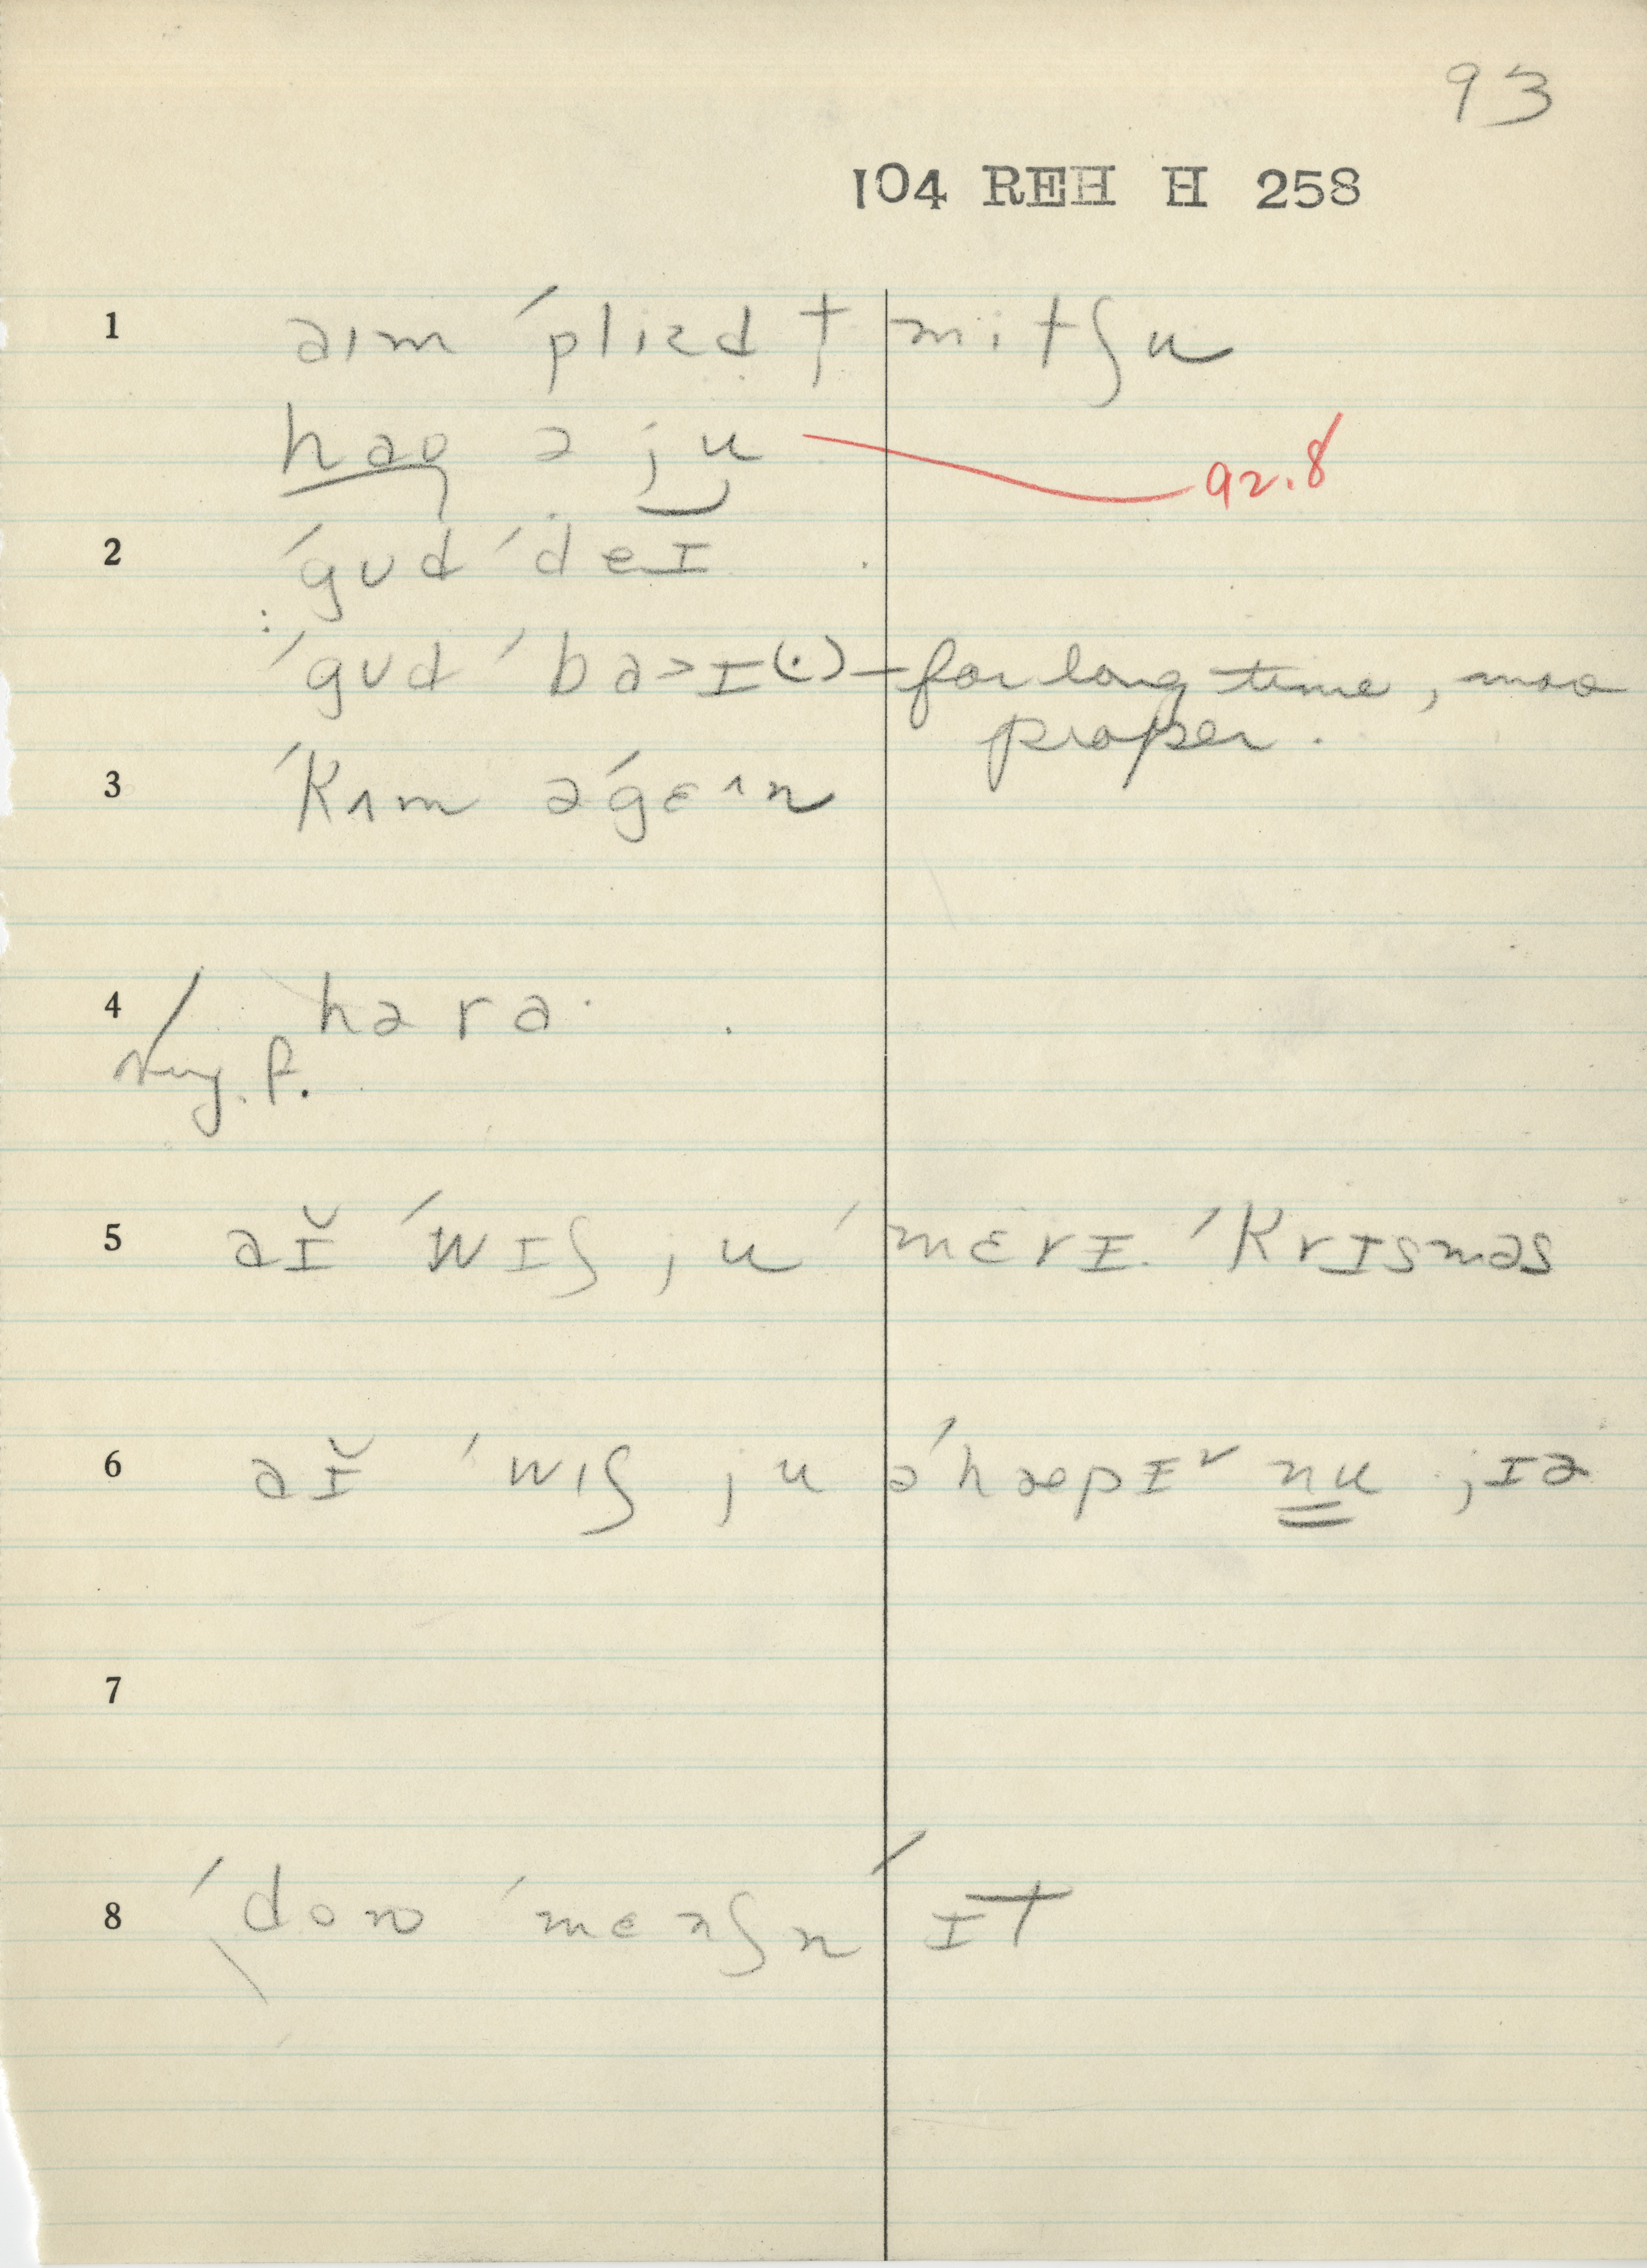 93
104 REH H 258
1 aɪm ˈplɪzd t̩ mitʃu
haʊ ə ju 92.8
2 ˈgʊd ˈdeɪ
: ˈgʊd ˈba>ɪ(·) – for long time, more
proper.
3 ˈkʌm əˈgɛ^n
4 hərɑ·
5 aɪ̆ ˈwɪʃ ju ˈmɛrɪ ˈkrɪsməs
6 aɪ̆ ˈwɪʃ ju əˈhæpɪ˅ nu jɪə
7
8 ˈdon ˈmenʃn ˈɪt